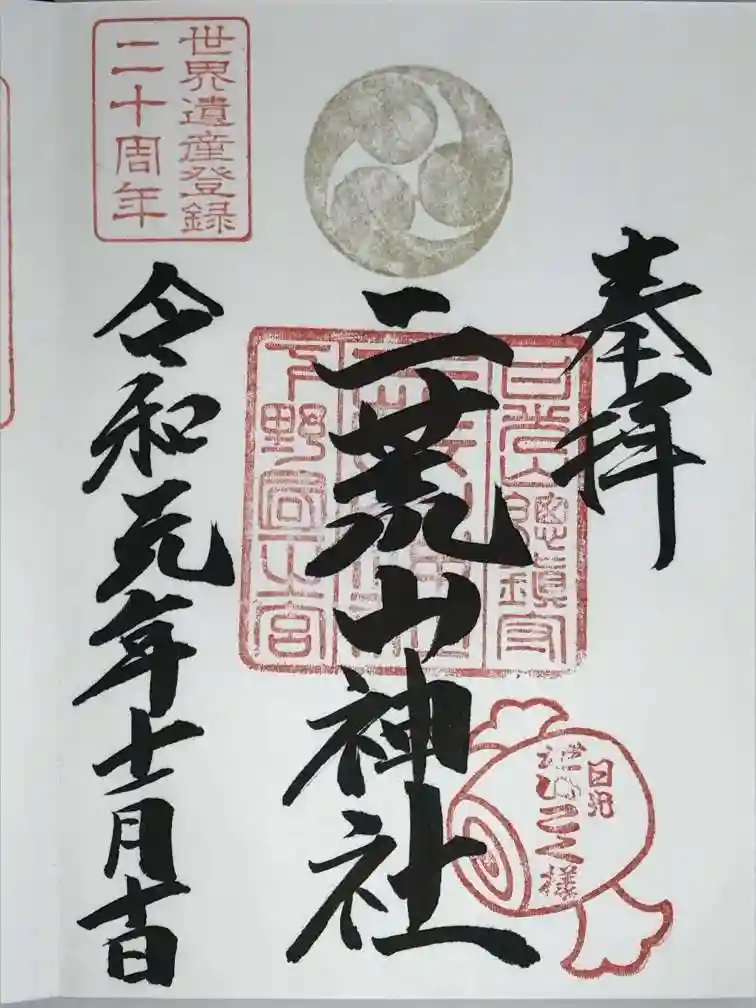 奉拝
日光山總鎮守
二荒山神社
下野國一之宮
二荒山神社
令和元年十一月
世界遺産登録
二十周年
日光
様